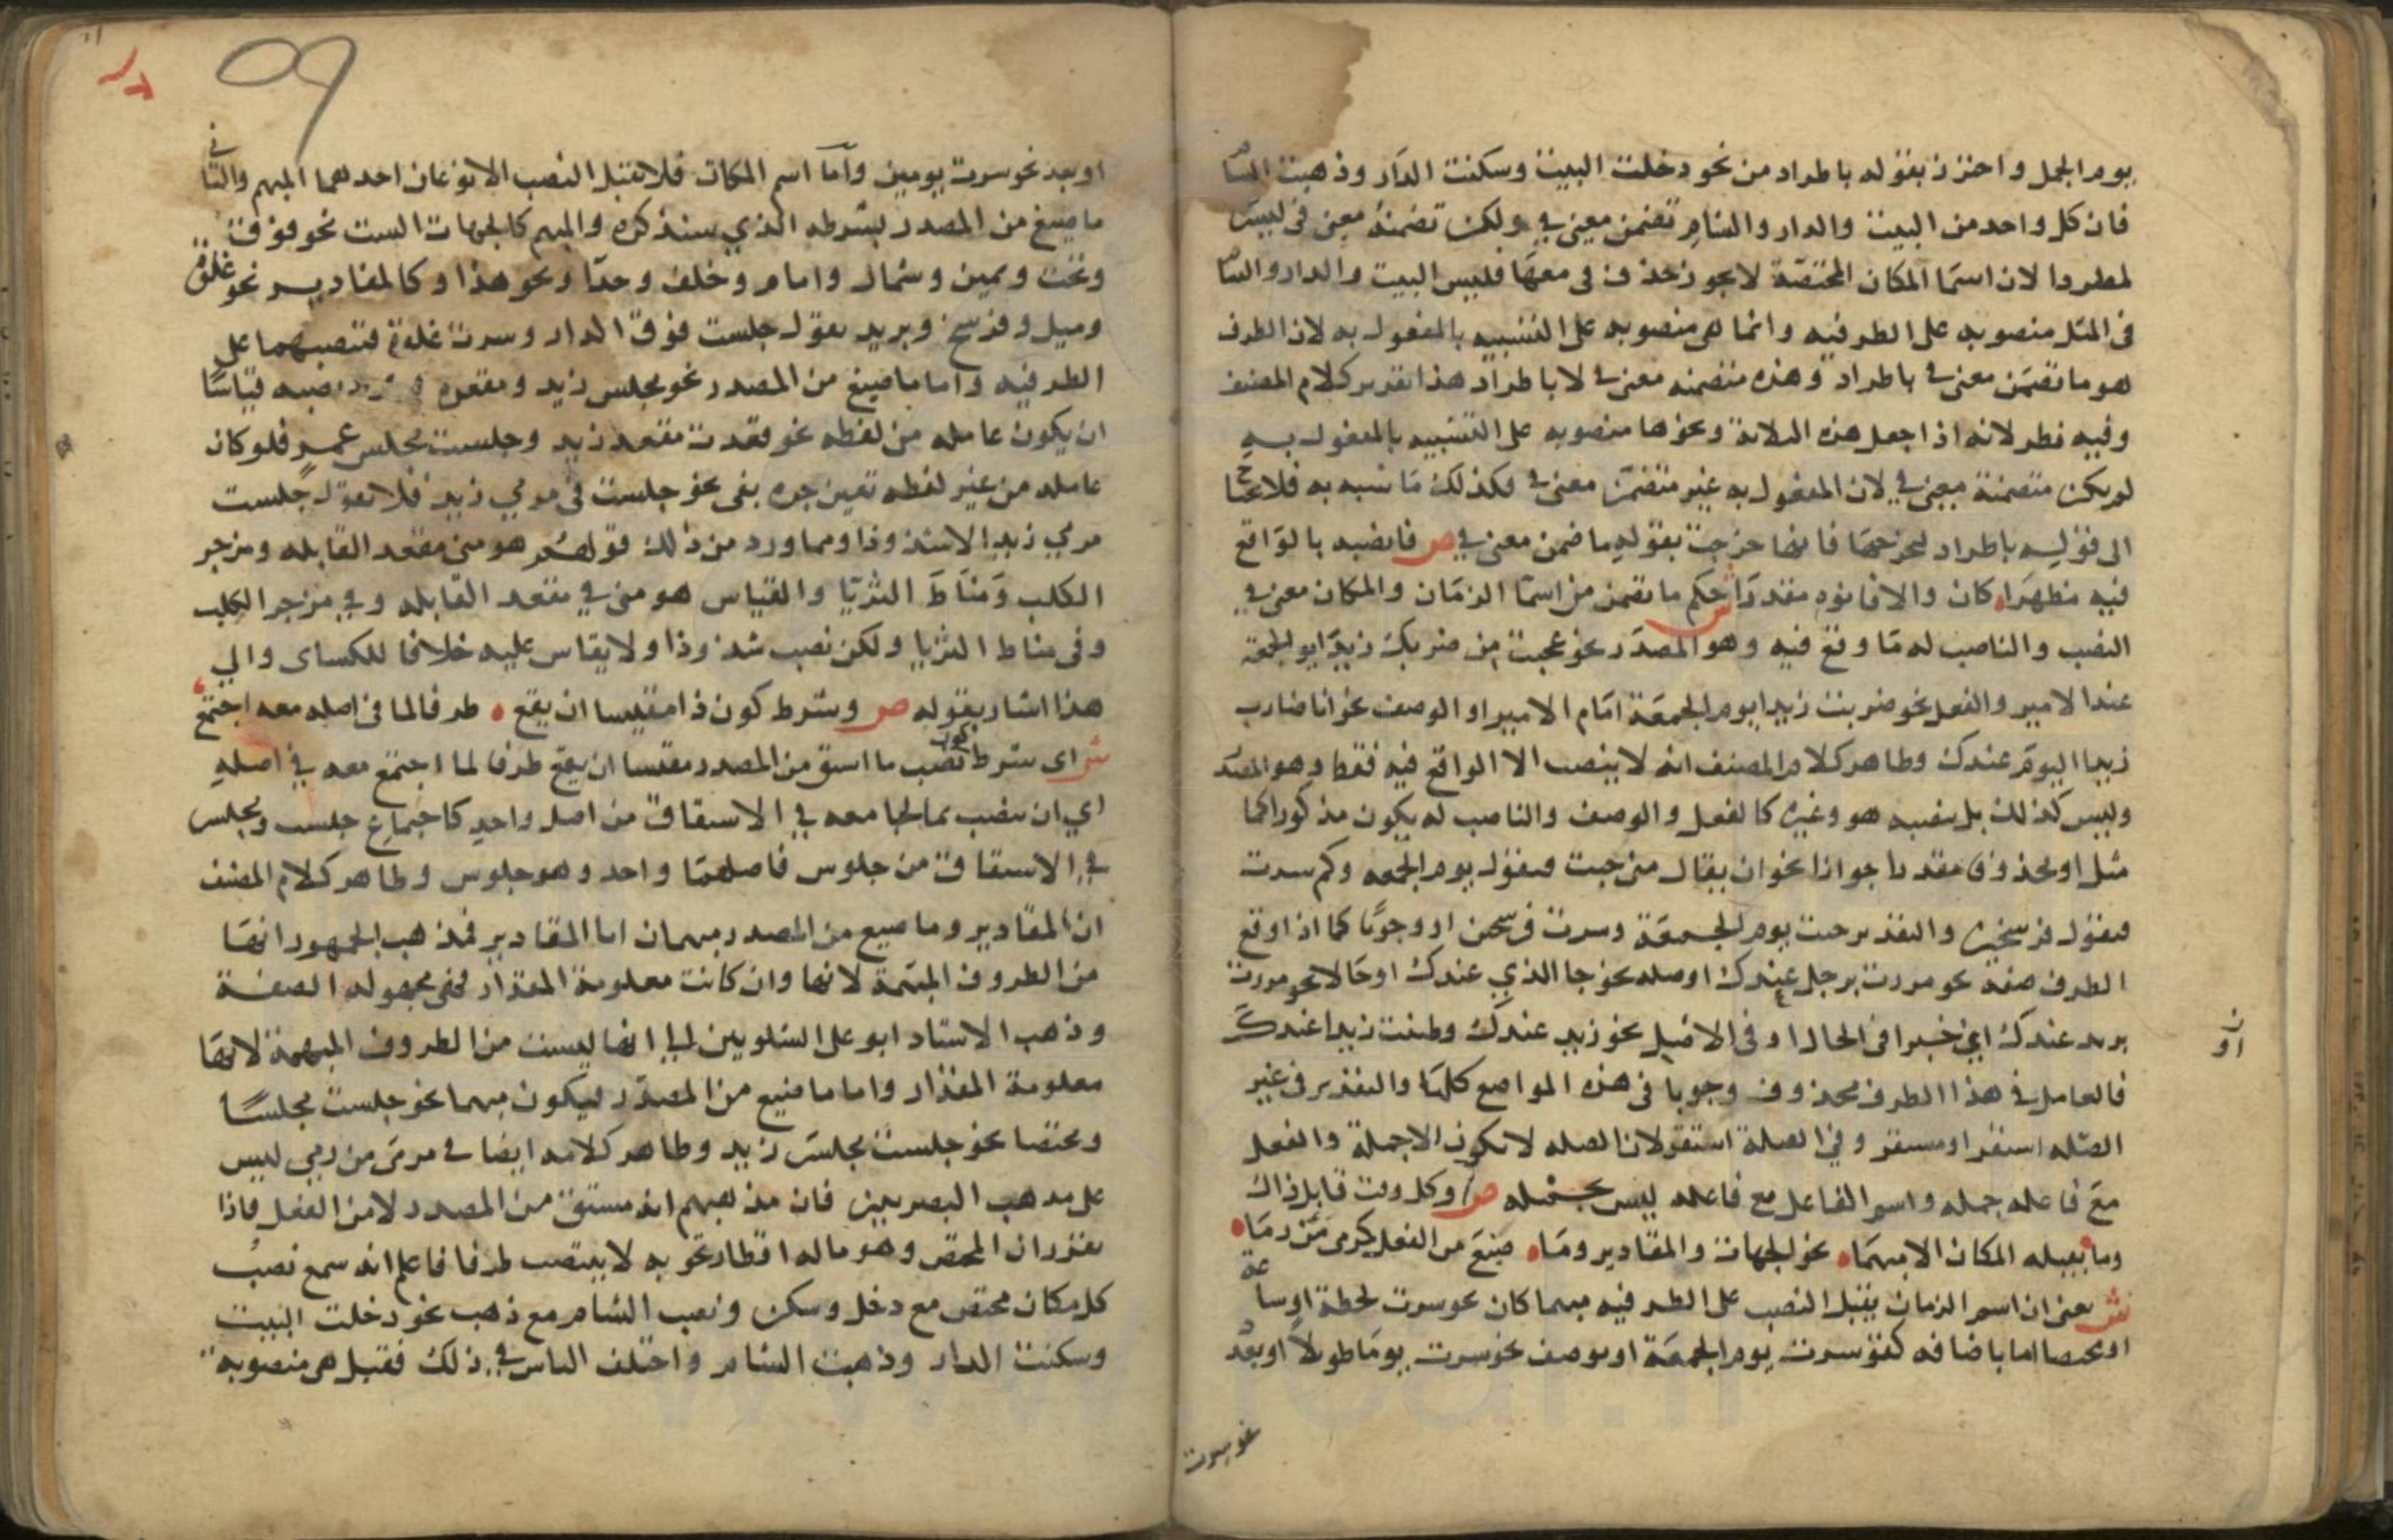 يوم الجمل واحترز بقوله باطراد من نحو دخلت البيت وسكنت الدار وذهبت الشام
فان كل واحد من البيت والدار والشام تضمن معنى في ولكن تضمنه معنى في ليس
لمطردا لان اسما المكان المختصة لا يجوز حذف في معها فليس البيت والدار والشام
في المثل منصوبه على الظرفيه وانما هي منصوبه على التشبيه بالمفعول به لان الظرف
هو ما تضمن معنى في باطراد وهذه متضمنه معنى في لا باطراد هذا تقرير كلام المصنف
وفيه نظر لانه اذا جعل هذه الثلاثة ونحوها منصوبه على التشبيه بالمفعول به
لم يكن متضمنة معنى في لان المفعول به غير متضمن معنى في فكذلك ما شبه به فلا يحتاج
الى قوله باطراد ليخرجها فانها خرجت بقوله ما ضمن معنى في ص فانصبه بالواقع
فيه مظهرا كان والا فانوه مقدرا ش حكم ما تضمن من اسما الزمان والمكان معنى في
النصب والناصب له ما وقع فيه وهو المصدر نحو عجبت من ضربك زيدا يوم الجمعة
عند الامير والفعل نحو ضربت زيدا يوم الجمعة امام الامير او الوصف نحو انا ضارب
زيدا اليوم عندك وظاهر كلام المصنف انه لا ينصب الا الواقع فيه فقط وهو المصدر
وليس كذلك بل ينصبه هو وغيره كالفعل والوصف والناصب له يكون مذكورا كما
مثل او محذوفا مقدرا جوازا نحو ان يقال متى جيت فتقول يوم الجمعه وكم سرت
فتقول فرسخين والتقدير جيت يوم الجمعة وسرت فرسخين او وجوبا كما اذا وقع
الظرف صفة نحو مررت برجل عندك او صله نحو جا الذي عندك او حالا نحو مررت
بزيد عندك اي خبرا في الحال او في الاصل نحو زيد عندك وظننت زيدا عندك
ن
او
فالعامل في هذا الظرف محذوف وجوبا في هذه المواضع كلها والتقدير في غير
الصله استقر او مستقر وفي الصلة استقر لان الصله لا تكون الا جملة والفعل
مع فاعله جمله واسم الفاعل مع فاعله ليس بجمله ص وكل وقت قابل ذاك
وما يقبله المكان الا مبهما نحو الجهات والمقادير وما صيغ من الفعل كرمى من رما
ش يعني ان اسم الزمان يقبل النصب على الظرفيه مبهما كان نحو سرت لحظة او ساعة
او مختصا اما باضافه كقو سرت يوم الجمعة او بوصف نحو سرت يوما طويلا او بعدد
نحو سرت
09
او بعدد نحو سرت يومين واما اسم المكان فلا يقبل النصب الا نوعان احدهما المبهم والثاني
ما صيغ من المصدر بشرطه الذي سنذكره والمبهم كالجهات الست نحو فوق
وتحت ويمين وشمال وامام وخلف وحدا ونحو هذا وكالمقادير نحو غلوة
وميل وفرسخ وبريد تقول جلست فوق الدار وسرت غلوة فتنصبهما على
الظرفيه واما ما صيغ من المصدر نحو مجلس زيد ومقعده نصبه قياسا
ان يكون عامله من لفظه نحو قعدت مقعد زيد وجلست مجلس عمرو فلو كان
عامله من غير لفظه تعين جره بفي نحو جلست في مرمي زيد فلا تقول جلست
مرمي زيد الا شذوذا ومما ورد من ذلك قولهم هو مني مقعد القابله ومزجر
الكلب ومناط الثريا والقياس هو مني في مقعد القابله وفي مزجر الكلب
وفي مناط الثريا ولكن نصب شذوذا ولا يقاس عليه خلافا للكساى والي
هذا اشار بقوله ص وشرط كون ذا مقيسا ان يقع ظرفا لما في اصله معه اجتمع
ش اى شرط كون نصب ما اشتق من المصدر مقيسا ان يقع ظرفا لما اجتمع معه في اصله
اي ان ينصب بما يجامعه في الاشتقاق من اصل واحد كاجتماع جلست ومجلس
في الاشتقاق من جلوس فاصلهما واحد وهو جلوس وظاهر كلام المصنف
ان المقادير وما صيغ من المصدر مبهمان اما المقادير فمذهب الجمهور انها
من الظروف المبهمة لانها وان كانت معلومة المقدار فهي مجهوله الصفة
وذهب الاستاد ابو على الشلوبين الى انها ليست من الظروف المبهمة لانها
معلومة المقدار واما ما صيغ من المصدر فيكون مبهما نحو جلست مجلسا
ومختصا نحو جلست مجلس زيد وظاهر كلامه ايضا في مرمى من رمي ليس
على مذهب البصريين فان مذهبهم انه مشتق من المصدر لا من الفعل فاذا
تقرر ان المختص وهو ماله اقطار تحويه لا ينتصب ظرفا فاعلم انه سمع نصب
كل مكان مختص مع دخل وسكن ونصب الشام مع ذهب نحو دخلت البيت
وسكنت الدار وذهبت الشام واختلف الناس في ذلك فقيل هي منصوبة